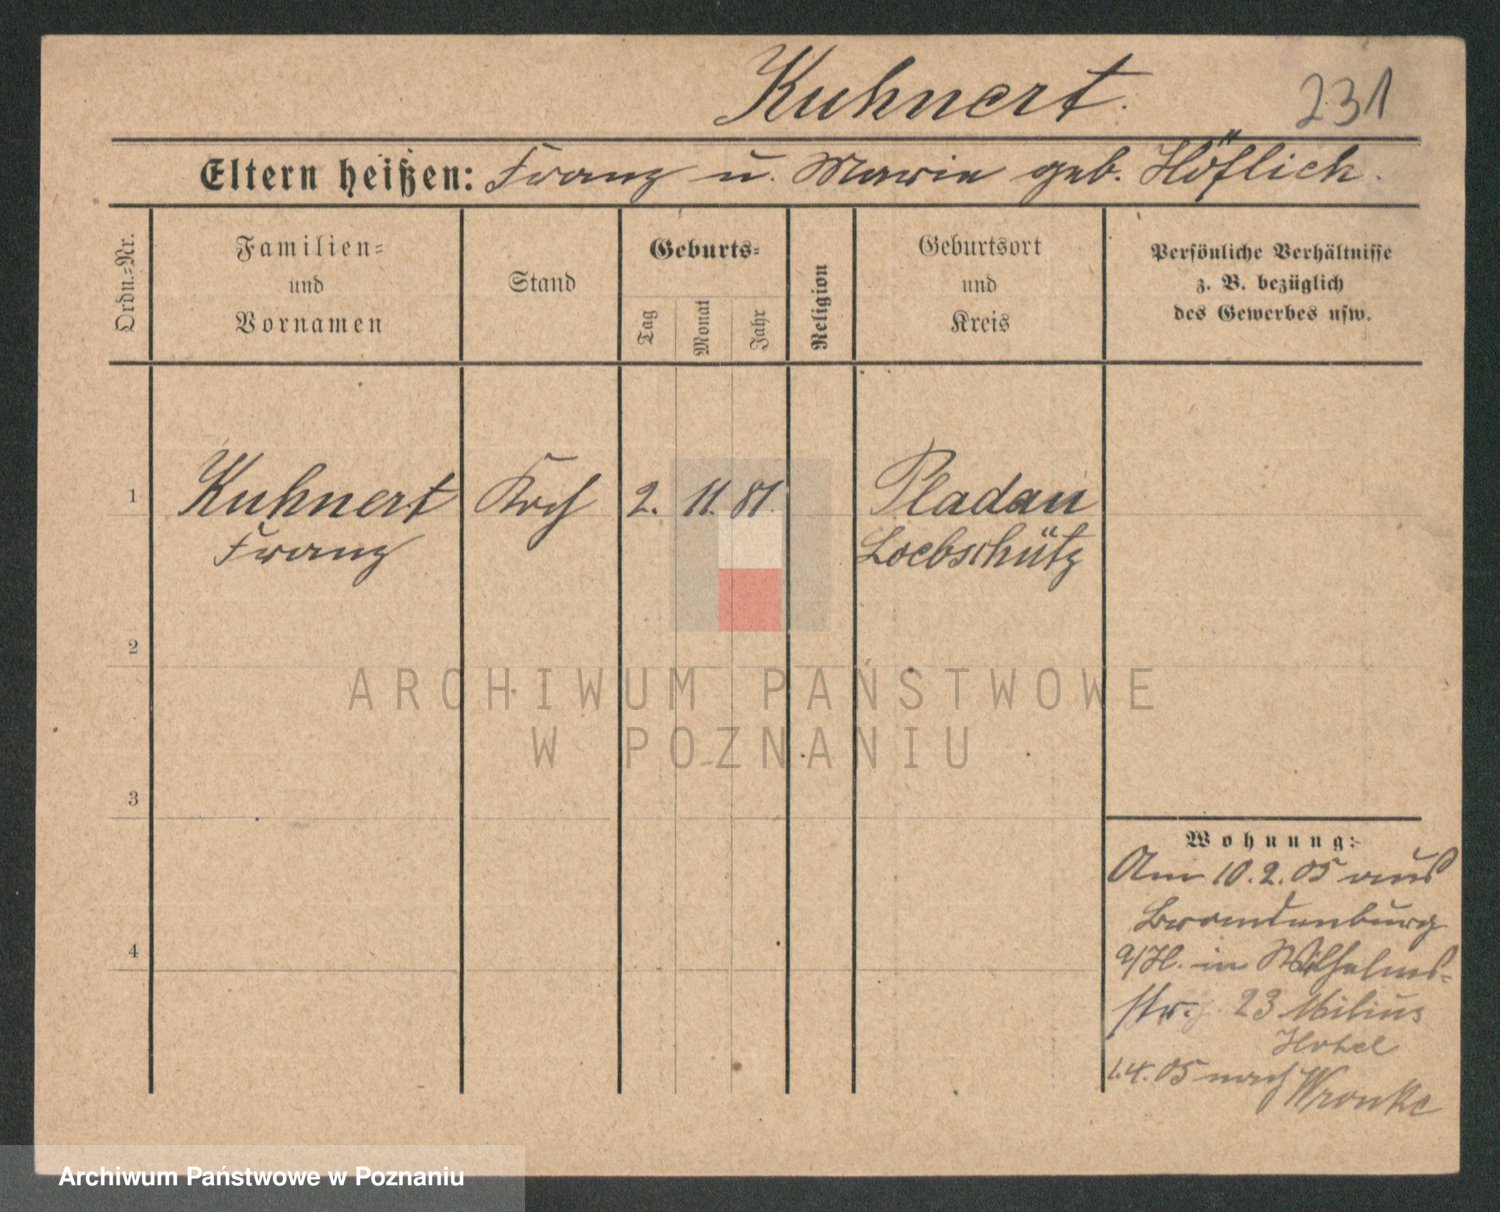 Kuhnert.
231
Eltern heißen: Franz u. Marie geb. Höflich.
Ordn.-Nr.
Familien-
und
Vornamen
Stand
Geburts-
Tag
Monat
Jahr
Religion
Geburtsort
und
Kreis
Persönliche Verhältnisse
z. B. bezüglich
des Gewerbes usw.
1 Kuhnert Koch 2. 11. 81. Pladau
Franz Loebschütz
2
3
4
Wohnung:
Am 10.2.05 aus
Brandenburg
a/H. in Wilhelms-
str. 23 Milius
Hotel
1.4.05 nach Wronke
ARCHIWUM PAŃSTWOWE
W POZNANIU
Archiwum Państwowe w Poznaniu